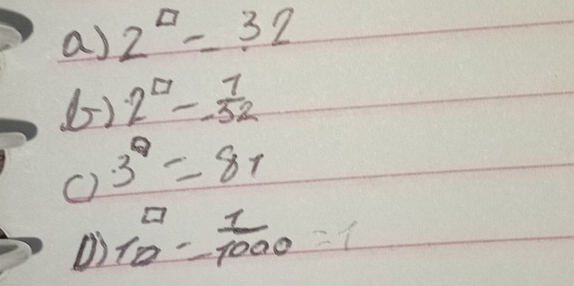 a) 2^□ = 32
b) 2^□ = 1/32
c) 3^□ = 81
D) 10^□ = 1/1000 = 1